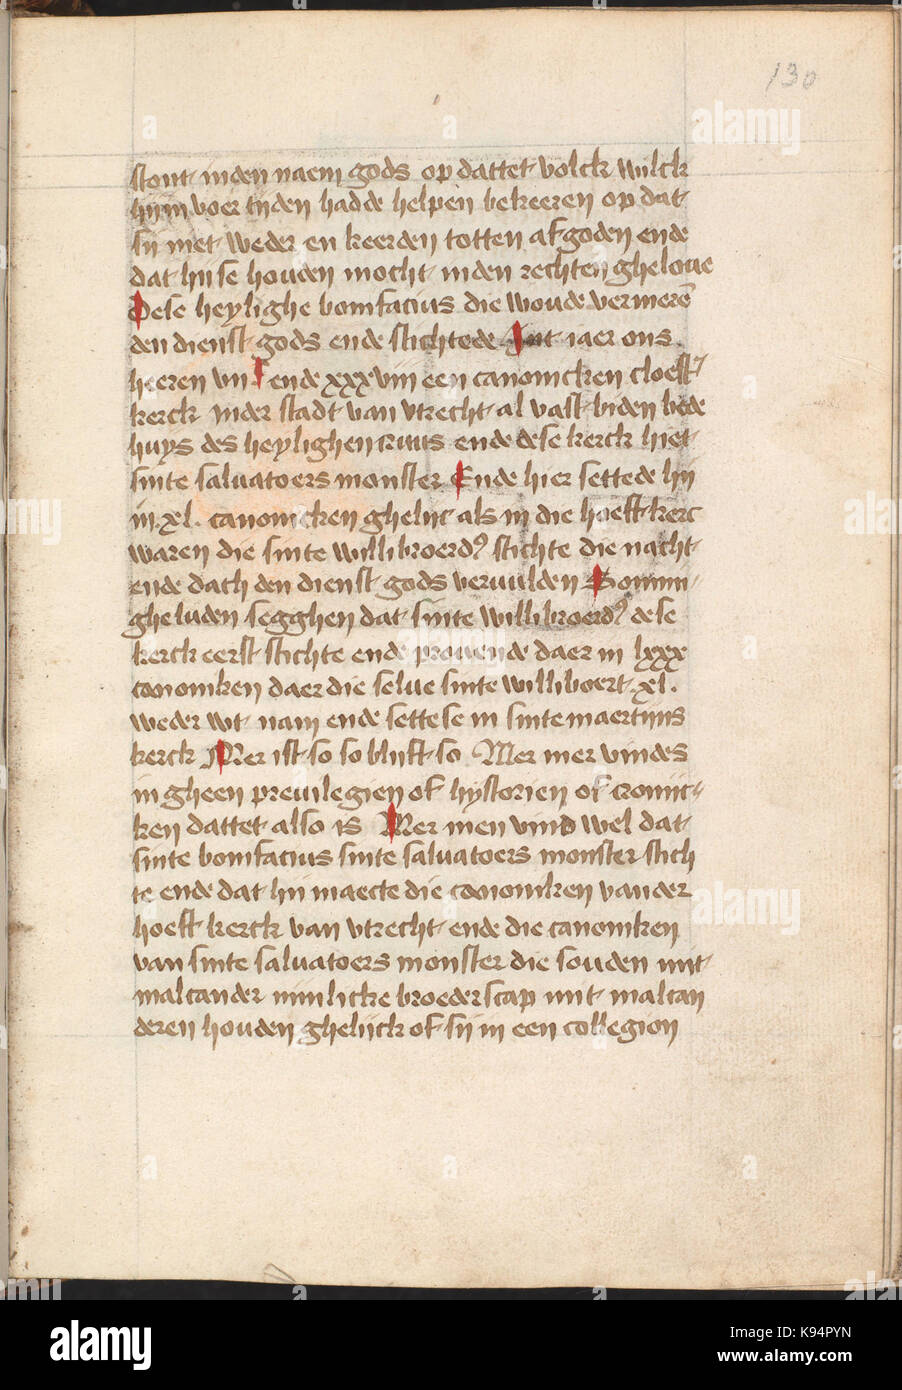 130
stont inden naem gods op dattet volck wilck
hijm voer tijden hadde helpen bekeeren op dat
sij niet weder en keerden totten afgoden ende
dat hijse houden mocht inden rechten ghelove
Dese heylighe bonifacius die woude vermeren
den dienst gods ende stichtede Int iaer ons
heeren vii ende xxxviii een canonicken cloest
kerck inder stadt van utrecht al vast biden bede
huys des heylighen cruus ende dese kerck hiet
sinte salvatoers monster Ende hier settede hij
in .xl. canonicken ghelijc als in die hoeft kerc
waren die sinte willibroerd9 stichte die nacht
ende dach den dienst gods vervulden Sommi
ghe luden segghen dat sinte willibroerd9 dese
kerck eerst stichte ende provende daer in lxxx
canoniken daer die selve sinte williboert .xl.
weder wt nam ende settese in sinte maertijns
kerck Mer ist so so blijft so Mer mer vindes
in gheen previlegien of hystorien of cronijc
ken dattet also is Mer men vind wel dat
sinte bonifacius sinte salvatoers monster stich
te ende dat hij maecte die canoniken vander
hoeft kerck van utrecht ende die canoniken
van sinte salvatoers monster die souden mit
malcander minlicke broederscap mit malcan
deren houden ghelijck of sij in een collegion
alamy
K94PYN
www.alamy.com